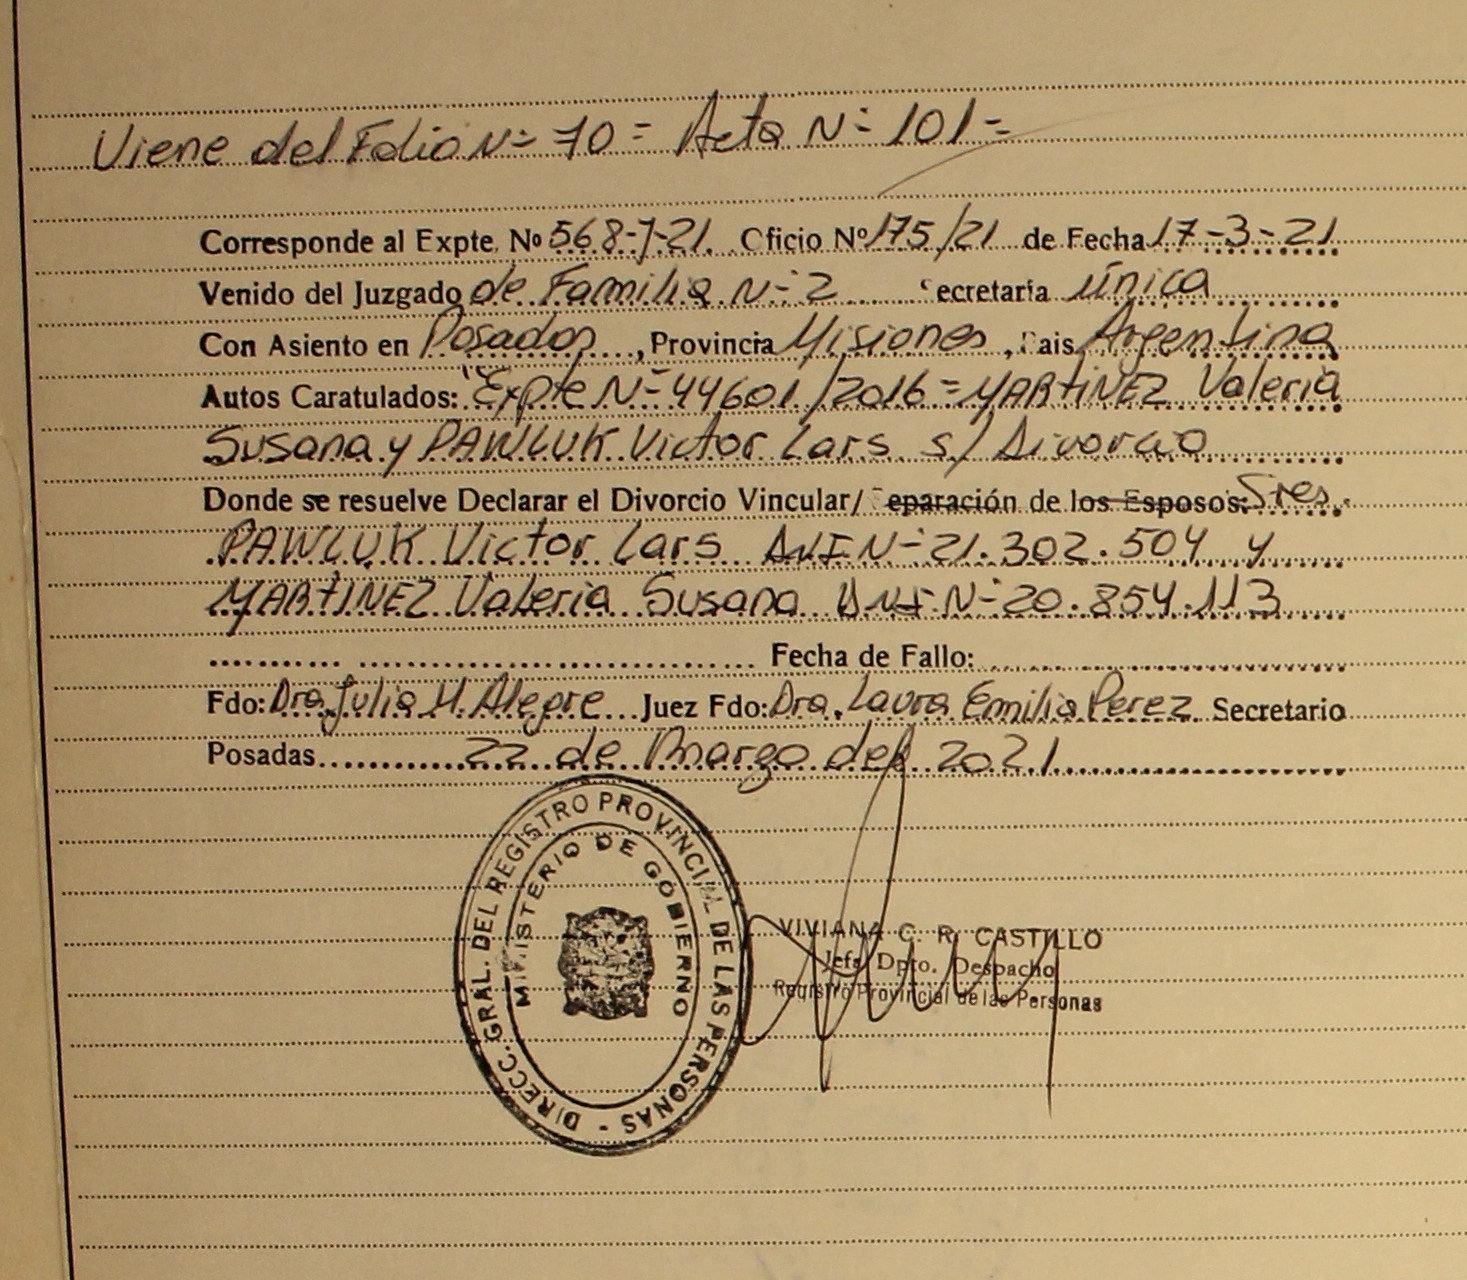 Viene del Folio Nº 70 = Acta Nº 101 =
Corresponde al Expte. Nº 568-J-21. Oficio Nº 175/21 de Fecha 17-3-21
Venido del Juzgado de Familia Nº 2 Secretaria única
Con Asiento en Posadas, Provincia Misiones, Pais Argentina
Autos Caratulados: "Expte Nº 44601/2016 = MARTINEZ Valeria
Susana y PAWLUK Victor Lars s/ Divorcio
Donde se resuelve Declarar el Divorcio Vincular/ Separación de los Esposos: Sres.
PAWLUK Victor Lars DNI Nº 21.302.504 y
MARTINEZ Valeria Susana DNI Nº 20.854.113
Fecha de Fallo:
Fdo: Dra. Julia M. Alegre Juez Fdo: Dra. Laura Emilia Perez Secretario
Posadas 22 de Marzo del 2021
DIRECC. GRAL. DEL REGISTRO PROVINCIAL DE LAS PERSONAS -
MINISTERIO DE GOBIERNO
VIVIANA C. R. CASTILLO
Jefa Dpto. Despacho
Registro Provincial de las Personas